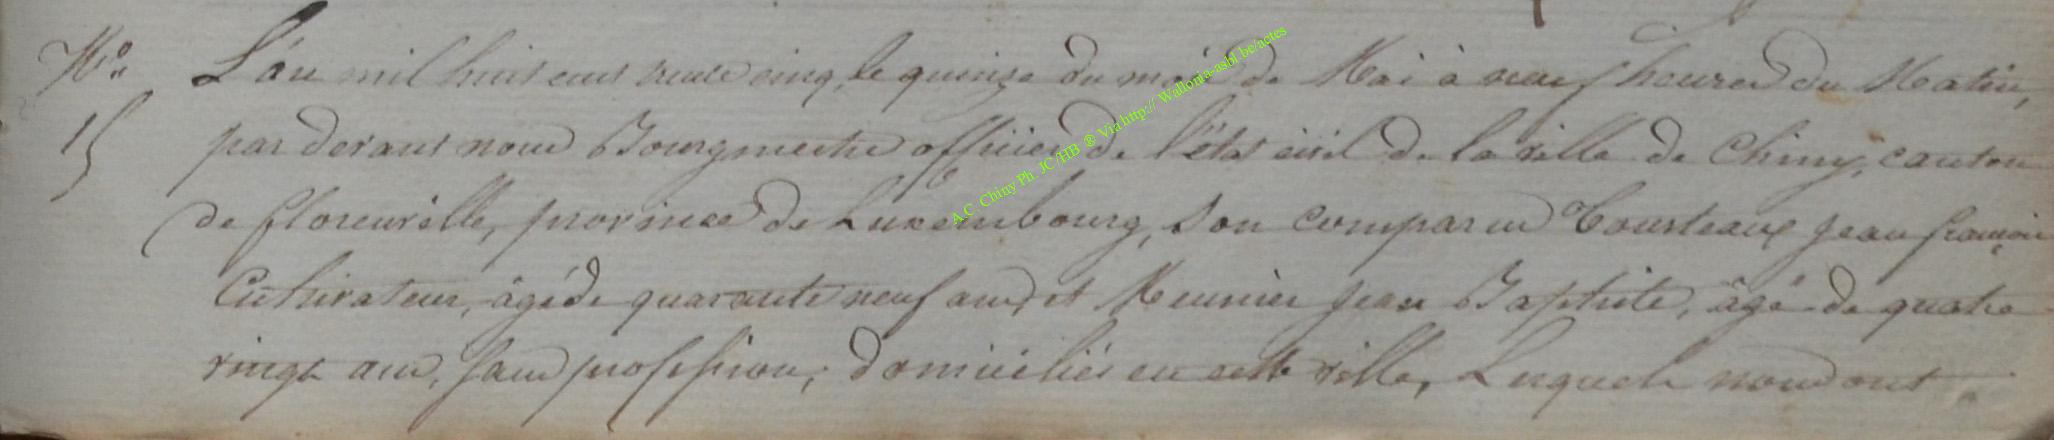 N° L'an mil huit cent trente cinq, le quinze du mois de Mai à neuf heures du Matin,
15 par devant nous Bourgmestre officier de l'état civil de la ville de Chiny, canton
de florenville, province de Luxembourg, son comparus Toursteaux jean françois
Cultivateur, âgé de quarante neuf ans, et Meunier jean Baptiste, âgé de quatre
vingt ans, sans profession, domiciliés en cette ville, Lesquels nous ont
A.C. Chiny Ph. JC/HB ® Via http:// Wallonia-asbl.be/actes